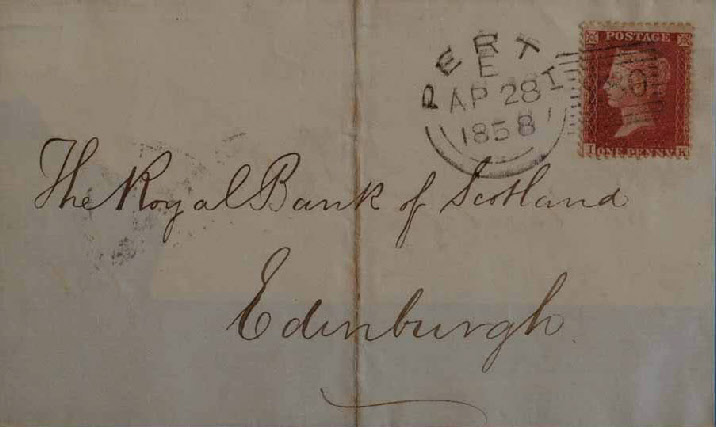 POSTAGE
PERTH
E
AP 28
1858
I ONE PENNY K
The Royal Bank of Scotland
Edinburgh